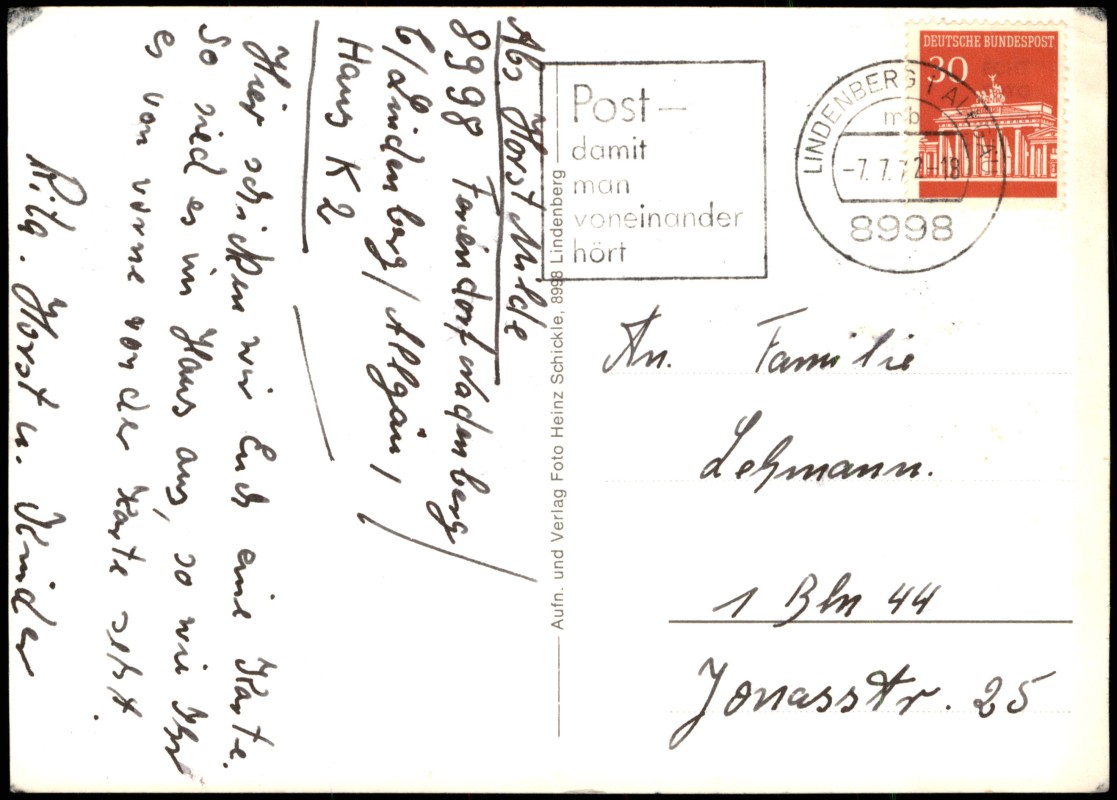 Abs Horst Milde
8998 Feriendorf Nadenberg
b/Lindenberg/Allgäu,
Haus K2
Hier schicken wir Euch eine Karte.
So sied es im Haus aus, so wie Ihr
es von vorne von der Karte seht.
Horst u. Kinder
Aufn. und Verlag Foto Heinz Schickle, 8998 Lindenberg
Post—
damit
man
voneinander
hört
LINDENBERG I ALLGÄU
mb
-7.7.72-18
8998
DEUTSCHE BUNDESPOST
30
An. Familie
Lehmann.
1 Bln 44
Jonasstr. 25